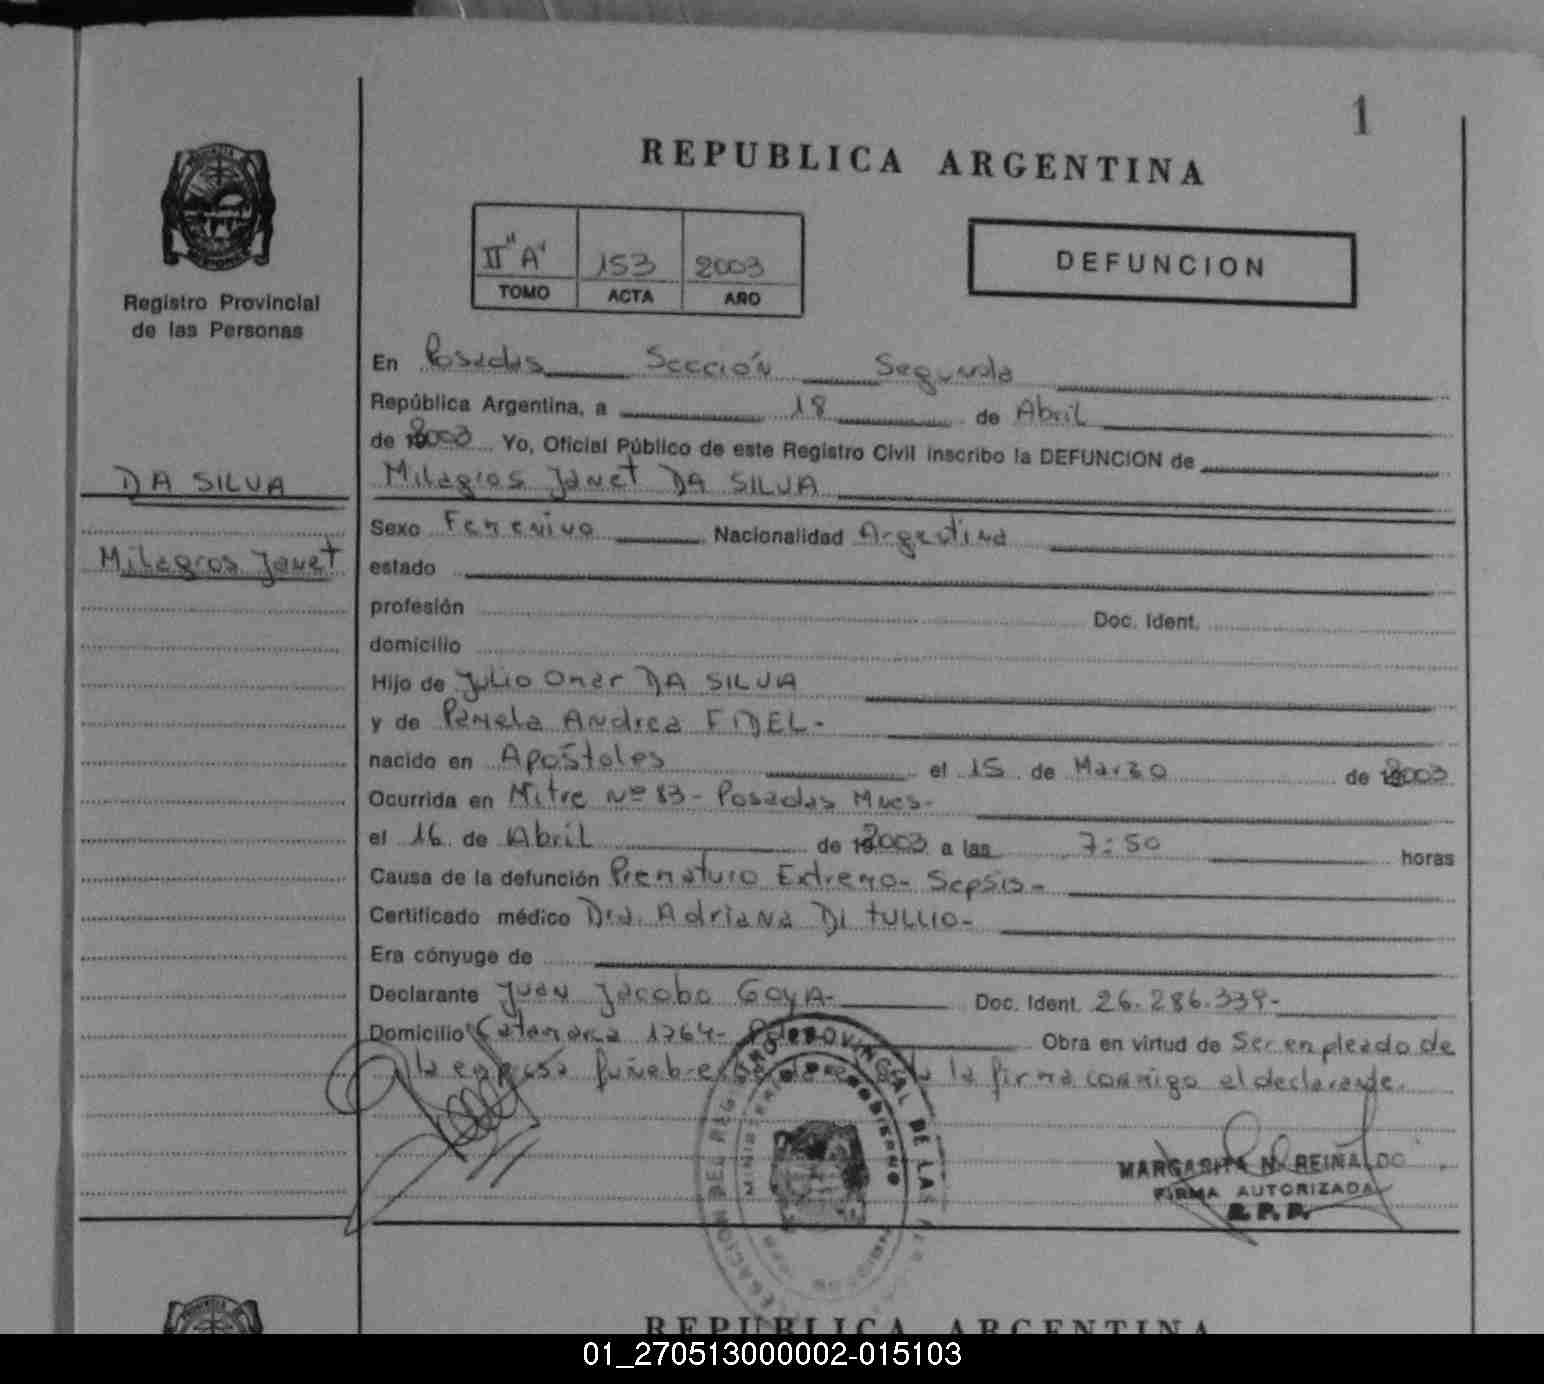 1
REPUBLICA ARGENTINA
Registro Provincial
de las Personas
II "A" 153 2003
TOMO ACTA AÑO
DEFUNCION
En Posadas Sección Segunda
República Argentina, a 18 de Abril
de 2003 Yo, Oficial Público de este Registro Civil inscribo la DEFUNCION de
DA SILVA
Milagros Janet DA SILVA
Milagros Janet
Sexo Femenino Nacionalidad Argentina
estado
profesión Doc. Ident.
domicilio
Hijo de Julio Omar DA SILVA
y de Pamela Andrea FIDEL-
nacido en Apóstoles el 15 de Marzo de 2003
Ocurrida en Mitre Nº 83- Posadas Mnes-
el 16 de Abril de 2003 a las 7:50 horas
Causa de la defunción Prematuro Extremo- Sepsis-
Certificado médico Dra. Adriana DI TULLIO-
Era cónyuge de
Declarante Juan Jacobo GOYA- Doc. Ident. 26.286.339-
Domicilio Catamarca 1764- Obra en virtud de Ser empleado de
la empresa fúnebre la firma conmigo el declarante.
MARGARITA N. REINALDO
FIRMA AUTORIZADA
R. P. P.
REPUBLICA ARGENTINA
01_270513000002-015103